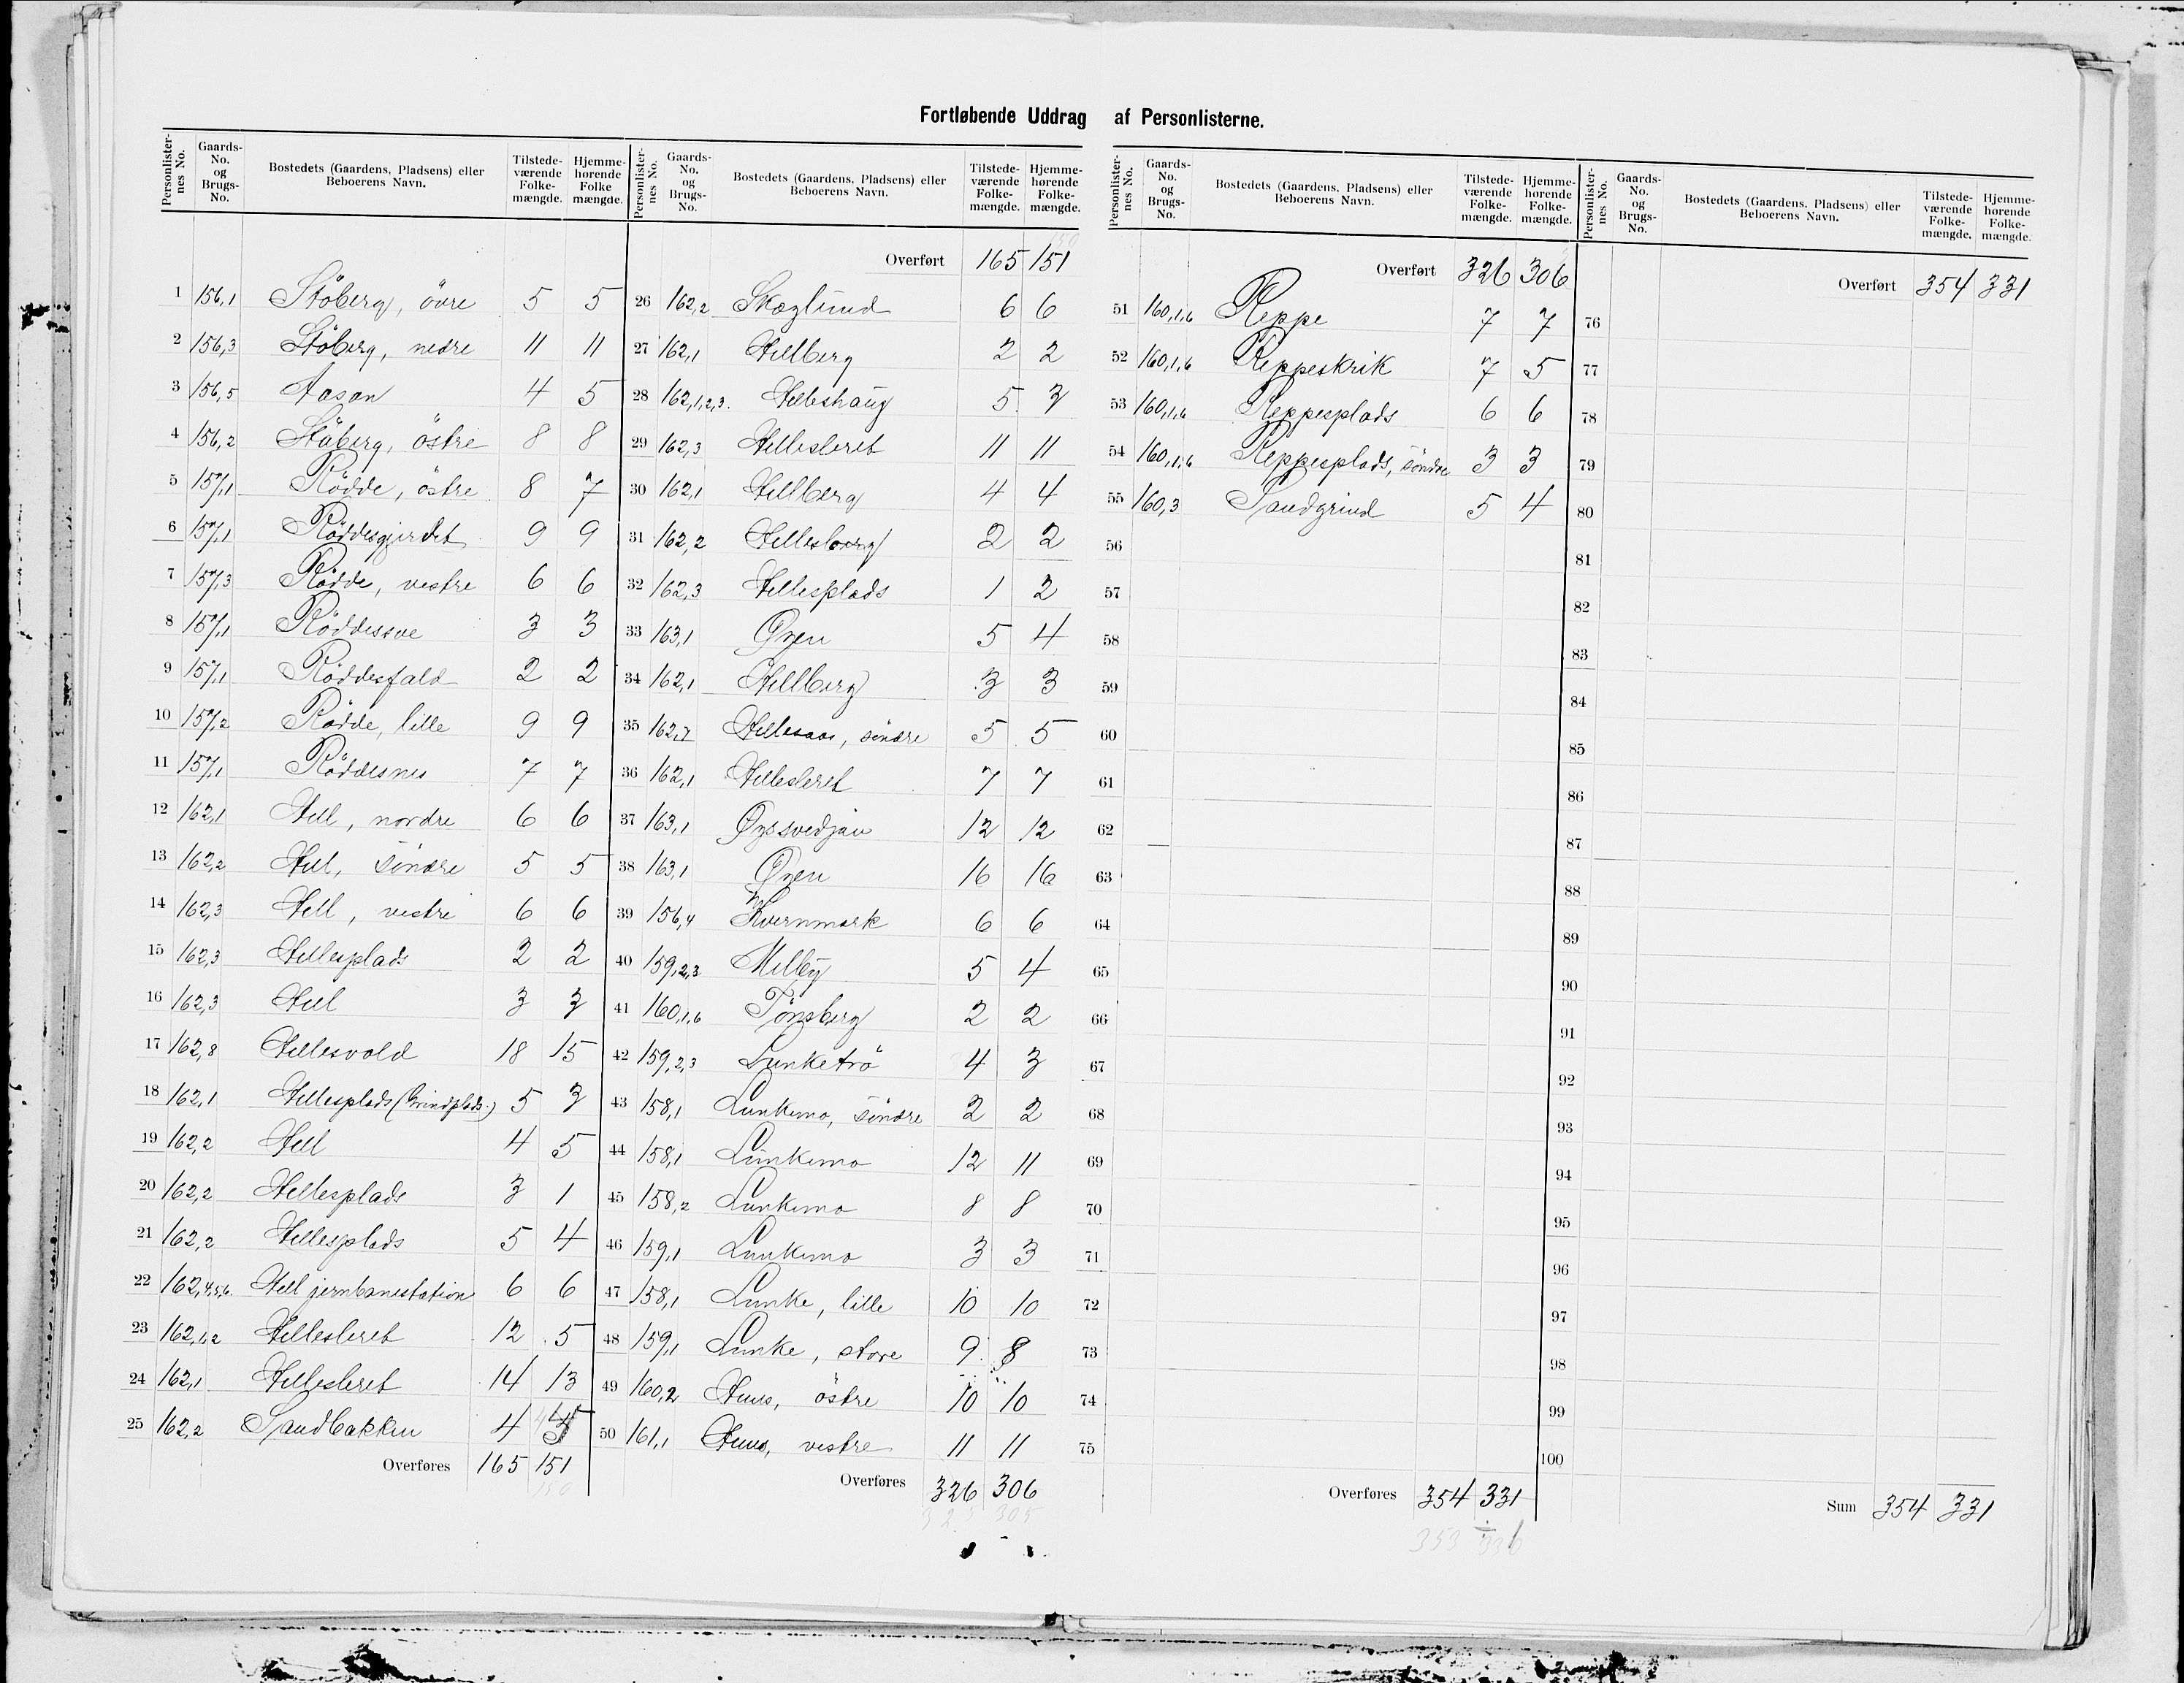 Fortløbende Uddrag af Personlisterne.
Personlisternes No. Gaards-No. og Brugs-No. Bostedets (Gaardens, Pladsens) eller Beboerens Navn. Tilstedeværende Folkemængde. Hjemmehørende Folkemængde.
1 156,1 Stöberg, övre 5 5
2 156,3 Stöberg, nedre 11 11
3 156,5 Aasan 4 5
4 156,2 Stöberg, östre 8 8
5 157,1 Rödde, östre 8 7
6 157,1 Röddesgjerdet 9 9
7 157,3 Rödde, vestre 6 6
8 157,1 Röddessve 3 3
9 157,1 Röddesfald 2 2
10 157,2 Rödde, lille 9 9
11 157,1 Röddesnes 7 7
12 162,1 Hell, nordre 6 6
13 162,2 Hell, söndre 5 5
14 162,3 Hell, vestre 6 6
15 162,3 Hellesplads 2 2
16 162,3 Hell 3 3
17 162,8 Hellesvold 18 15
18 162,1 Hellesplads (Grindplads) 5 3
19 162,2 Hell 4 5
20 162,2 Hellesplads 3 1
21 162,2 Hellesplads 5 4
22 162,4,5,6 Hell jernbanestation 6 6
23 162,1,2 Hellesleret 12 5
24 162,1 Hellesleret 14 13
25 162,2 Sandbakken 4
Overføres 165 151
150
Personlisternes No. Gaards-No. og Brugs-No. Bostedets (Gaardens, Pladsens) eller Beboerens Navn. Tilstedeværende Folkemængde. Hjemmehørende Folkemængde.
Overført 165 151
26 162,2 Skoglund 6 6
27 162,1 Hellberg 2 2
28 162,1,2,3. Helleshaug 5 3
29 162,3 Hellesleret 11 11
30 162,1 Hellberg 4 4
31 162,2 Hellesberg 2 2
32 162,3 Hellesplads 1 2
33 163,1 Øyen 5 4
34 162,1 Hellberg 3 3
35 162,7 Hellesaas, söndre 5 5
36 162,1 Hellesleret 7 7
37 163,1 Øyssvedjan 12 12
38 163,1 Øyen 16 16
39 156,4 Kvernmark 6 6
40 159,2,3 Milby 5 4
41 160,1,6 Tönsberg 2 2
42 159,2,3 Lunketrö 4 3
43 158,1 Lunkemo, söndre 2 2
44 158,1 Lunkemo 12 11
45 158,2 Lunkemo 8 8
46 159,1 Lunkemo 3 3
47 158,1 Lunke, lille 10 10
48 159,1 Lunke, store 9 8
49 160,2 Huus, östre 10 10
50 161,1 Huus, vestre 11 11
Overføres 326 306
325 305
Personlisternes No. Gaards-No. og Brugs-No. Bostedets (Gaardens, Pladsens) eller Beboerens Navn. Tilstedeværende Folkemængde. Hjemmehørende Folkemængde.
Overført 326 306
51 160,1,6 Reppe 7 7
52 160,1,6 Reppeskrik 7 5
53 160,1,6 Reppesplads 6 6
54 160,1,6 Reppesplads, söndre 3 3
55 160,3 Sandgrind 5 4
56
57
58
59
60
61
62
63
64
65
66
67
68
69
70
71
72
73
74
75
Overføres 354 331
353 330
Personlisternes No. Gaards-No. og Brugs-No. Bostedets (Gaardens, Pladsens) eller Beboerens Navn. Tilstedeværende Folkemængde. Hjemmehørende Folkemængde.
Overført 354 331
76
77
78
79
80
81
82
83
84
85
86
87
88
89
90
91
92
93
94
95
96
97
98
99
100
Sum 354 331